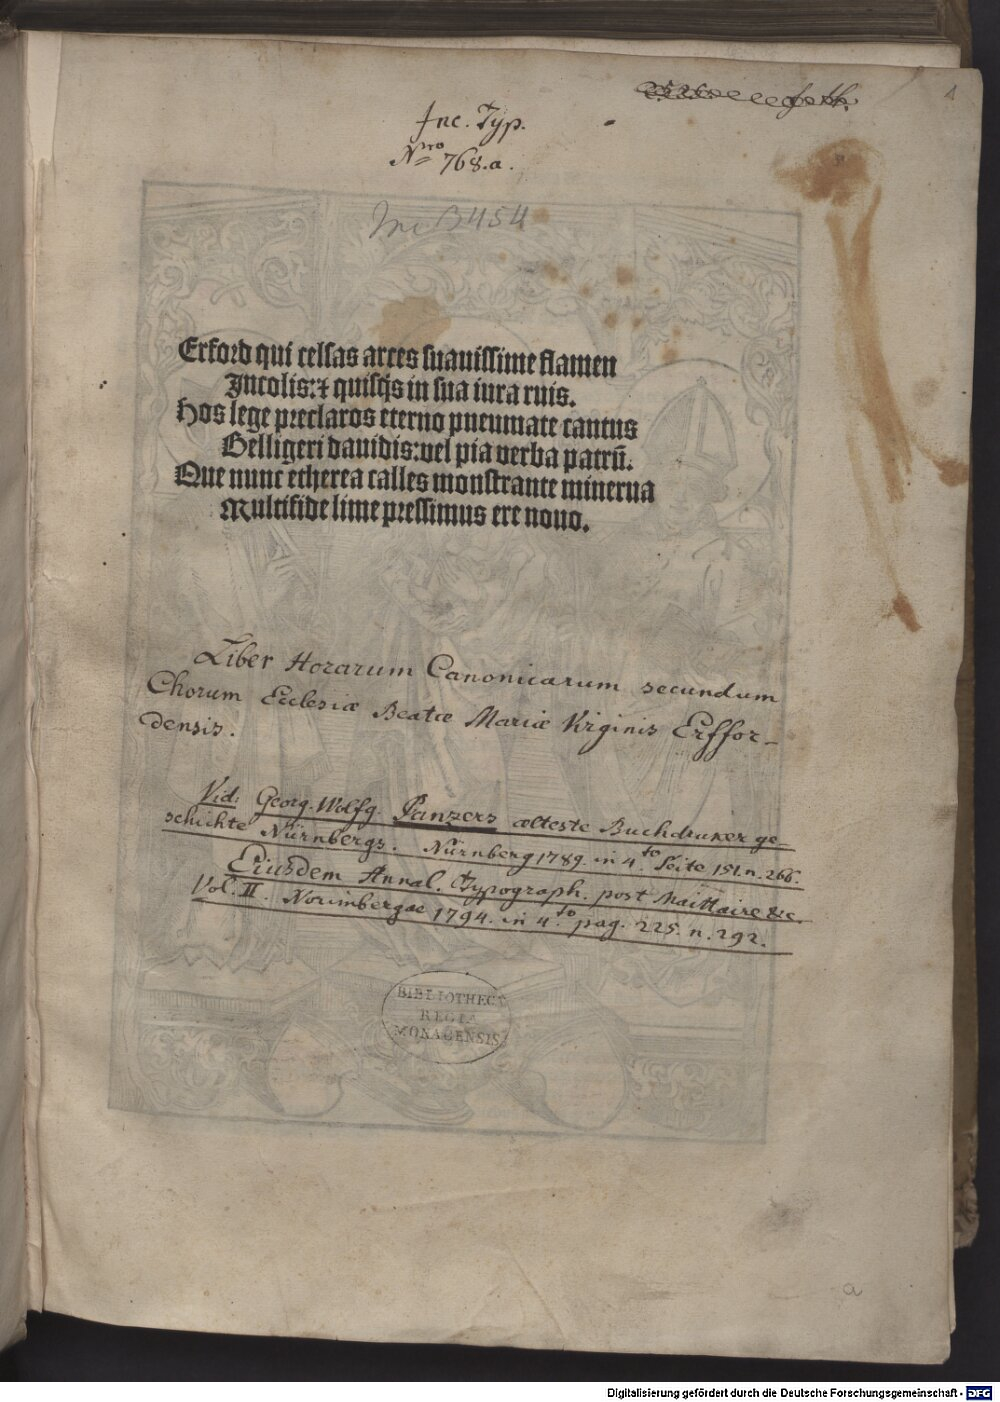 1
Inc. Typ.
Nro 768.a.
Inc B 454
Erford qui celsas arces suauissime flamen
Incolis: ⁊ quisq̃s in sua iura ruis.
Hos lege preclaros eterno pneumate cantus
Belligeri dauidis: vel pia verba patrū.
Que nunc etherea calles monstrante minerua
Multifide lime pressimus ere nouo.
Liber Horarum Canonicarum secundum
Chorum Ecclesiæ Beatæ Mariæ Virginis Erffor-
densis.
Vid: Georg. Wolfg. Panzers ælteste Buchdruker ge-
schichte Nürnbergs. Nürnberg 1789. in 4.to Seite 151. n. 266.
Eiusdem Annal. Typograph. post Maittaire &c.
Vol. II. Norimbergae 1794. in 4.to pag. 225. n. 292.
BIBLIOTHECA
REGIA
MONACENSIS
a
Digitalisierung gefördert durch die Deutsche Forschungsgemeinschaft - DFG